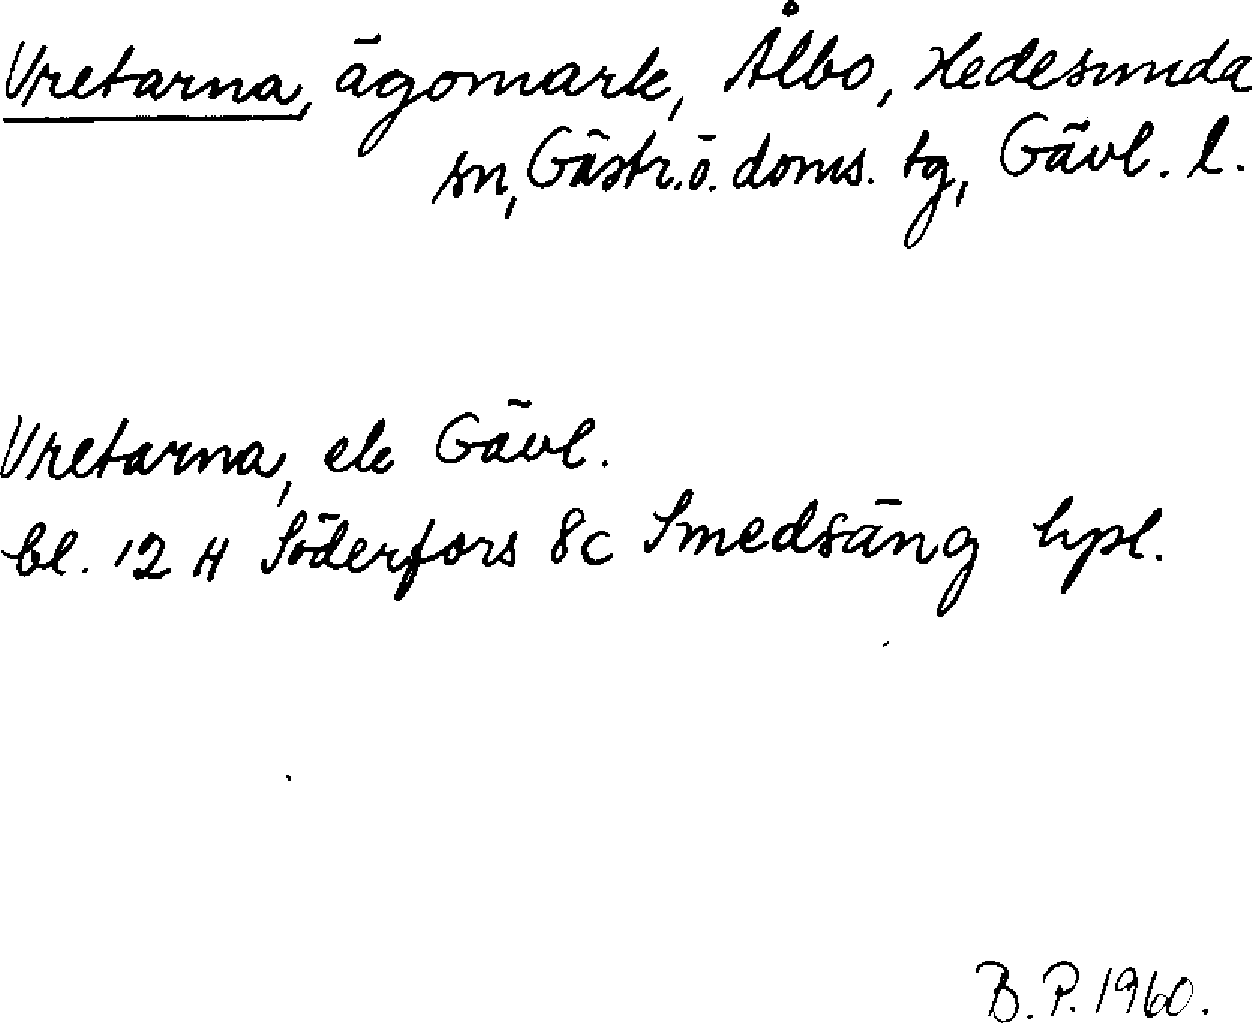 Vretarna, ägomark, Ålbo, Hedesunda
sn, Gästr. ö. doms. tg, Gävl. l.
Vretarna, ek Gävl.
bl. 12 H Söderfors 8c Smedsäng hpl.
B. P. 1960.